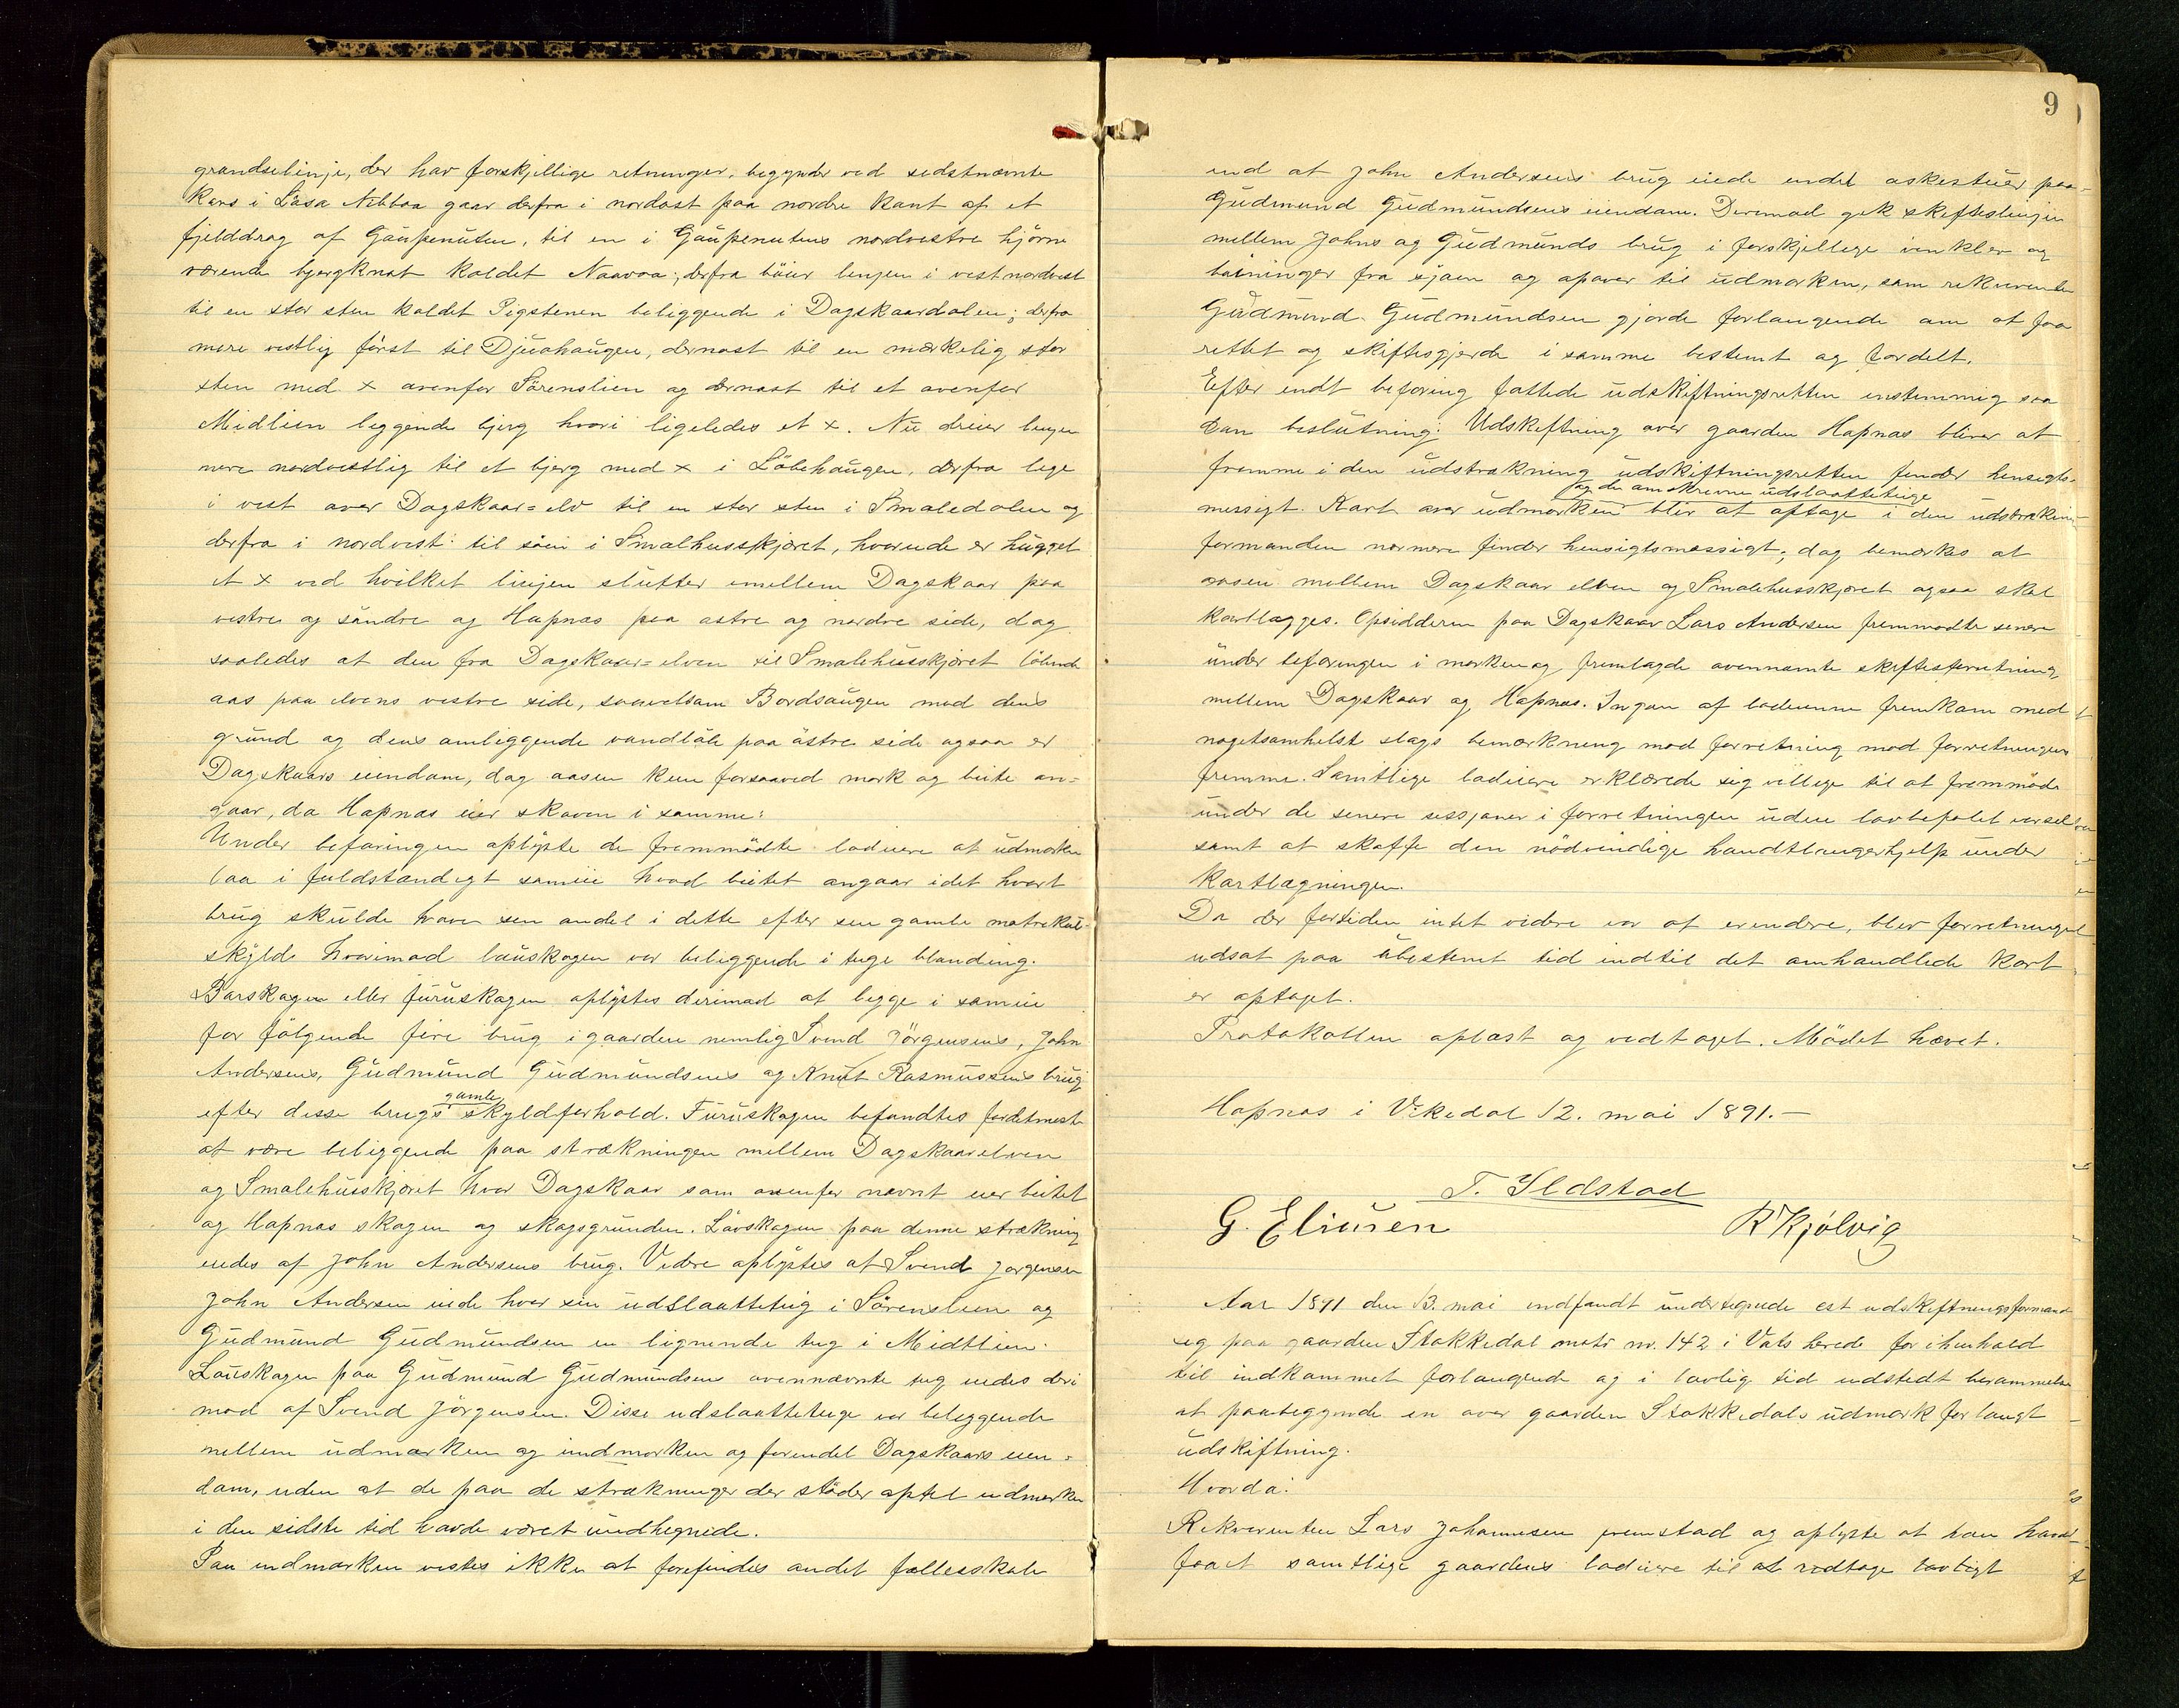 grændselinje, der har forskjellige retninger, begynder ved sidstnævnte
kars i Låsa Nibbaa gaar derfra i nordost paa nordre kant af et
fjelddrag af Gaupenuten, til en i Gaupenutens nordvestre hjörne
værende bjergknat kaldet Naavaa; derfra böier linjen i vestnordvest
til en stor sten kaldet Pigstenen beliggende i Dagskaardalen; derfra
mere vestlig först til Djuahaugen, dernæst til en mærkelig stor
sten med x ovenfor Sörenslien og dernæst til et ovenfor
Midlien liggende bjerg hvori ligeledes et x. Nu dreier linjen
mere nordvestlig til et bjerg med x i Löbehaugen, derfra lige
i vest over Dagskaar=elv til en stor sten i Smaledalen og
derfra i nordvest til söen i Smalhusskjæret, hvorude er hugget
et x ved hvilket linjen slutter imellem Dagskaar paa
vestre og söndre og Hapnæs paa östre og nordre side, dog
saaledes at den fra Dagskaar=elven til Smalehusskjæret löbende
aas paa elvens vestre side, saavelsom Bordsaugen med dens
grund og dens omliggende vandlöb paa östre side ogsaa er
Dagskaars eiendom, dog aasen kun forsaavid mark og beite an=
gaar, da Hapnæs eier skoven i samme:
Under befaringen oplyste de fremmödte lodeiere at udmarken
laa i fuldstændigt sameie hvad beitet angaar idet hvert
brug skulde have sin andel i dette efter sin gamle matrikul=
skyld. hvorimod lauskogen var beliggende i teige blanding.
Barskogen eller furuskogen oplystes derimod at ligge i sameie
for fölgende fire brug i gaarden nemlig Svend Jörgensens, John
Andersens, Gudmund Gudmundsens og Knut Rasmussens brug
efter disse brugs gamle skyldforhold. Furuskogen befandtes fordetmeste
at være beliggende paa strækningen mellem Dagskaarelven
og Smalehusskjæret hvor Dagskaar som ovenfor nævnt eier beitet
og Hapnæs skogen og skogsgrunden. Lövskogen paa denne strækning
eiedes af John Andersens brug. Videre oplystes at Svend Jørgensen
John Andersen eiede hver sin udslaatteteig i Sörenslien og
Gudmund Gudmundsen en lignende teig i Midtlien.
Lauskogen paa Gudmund Gudmundsens ovennævnte teig eiedes deri
mod af Svend Jörgensen. Disse udslaatteteige var beliggende
mellem udmarken og indmarken og forendel Dagskaars eien=
dom, uden at de paa de strækninger der stöder optil udmarken
i den sidste tid havde været indhegnede.
Paa indmarken vistes ikke at forefindes andet fællesskab
9
end at John Andersens brug eiede endel askestuer paa
Gudmund Gudmundsens eiendom. Derimod gik skifteslinjen
mellem Johns og Gudmunds brug i forskjellige vinkler og
böininger fra sjöen og opover til udmarken, som rekvirenten
Gudmund Gudmundsen gjorde forlangende om at faa
rettet og skiftesgjerde i samme bestemt og fordelt.
Efter endt befaring fattede udskiftningsretten enstemmig saa
dan beslutning: Udskiftning over gaarden Hapnæs bliver at
fremme i den udstrækning udskiftningsretten finder hensigts-
og de omskrevne udslaatteteige
messigt. Kart over udmarken blir at optage i den udstrækning
formanden nærmere finder hensigtsmæssigt; dog bemærkes at
aasen mellem Dagskaar elven og Smalehusskjæret ogsaa skal
kartlægges. Opsidderen paa Dagskaar Lars Andersen fremmødte senere
under befaringen i marken og fremlagde ovennævnte skiftesforretning
mellem Dagskaar og Hapnæs. Ingen af lodeierne fremkom med
nogetsomhelst slags bemærkning mod forretning mod forretningens
fremme. Samtlige lodeiere erklærede sig villige til at fremmöde
under de senere sessjoner i forretningen uden lovbefalet varsel
samt at skaffe den nödvendige haandtlangerhjelp under
kartlægningen.
Da der fortiden intet videre var at erindre, blev forretningen
udsat paa ubestemt tid indtil det omhandlede kart
er optaget.
Protokollen oplæst og vedtaget. Mödet hævet.
Hapnæs i Vikedal 12. mai 1891.—
T. Ildstad
G. Eliasen R Kjölvig
Aar 1891 den 13. mai indfandt undertegnede cst udskiftningsformand
sig paa gaarden Stokkedal matr nr. 142 i Vats herede for ihenhold
til indkommet forlangende og i lovlig tid udstedt berammelse
at paabegynde en over gaarden Stokkedals udmark forlangt
udskiftning.
Hvorda:
Rekvirenten Lars Johannesen fremstod og oplyste at han havde
faaet samtlige gaardens lodeiere til at vedtage lovligt